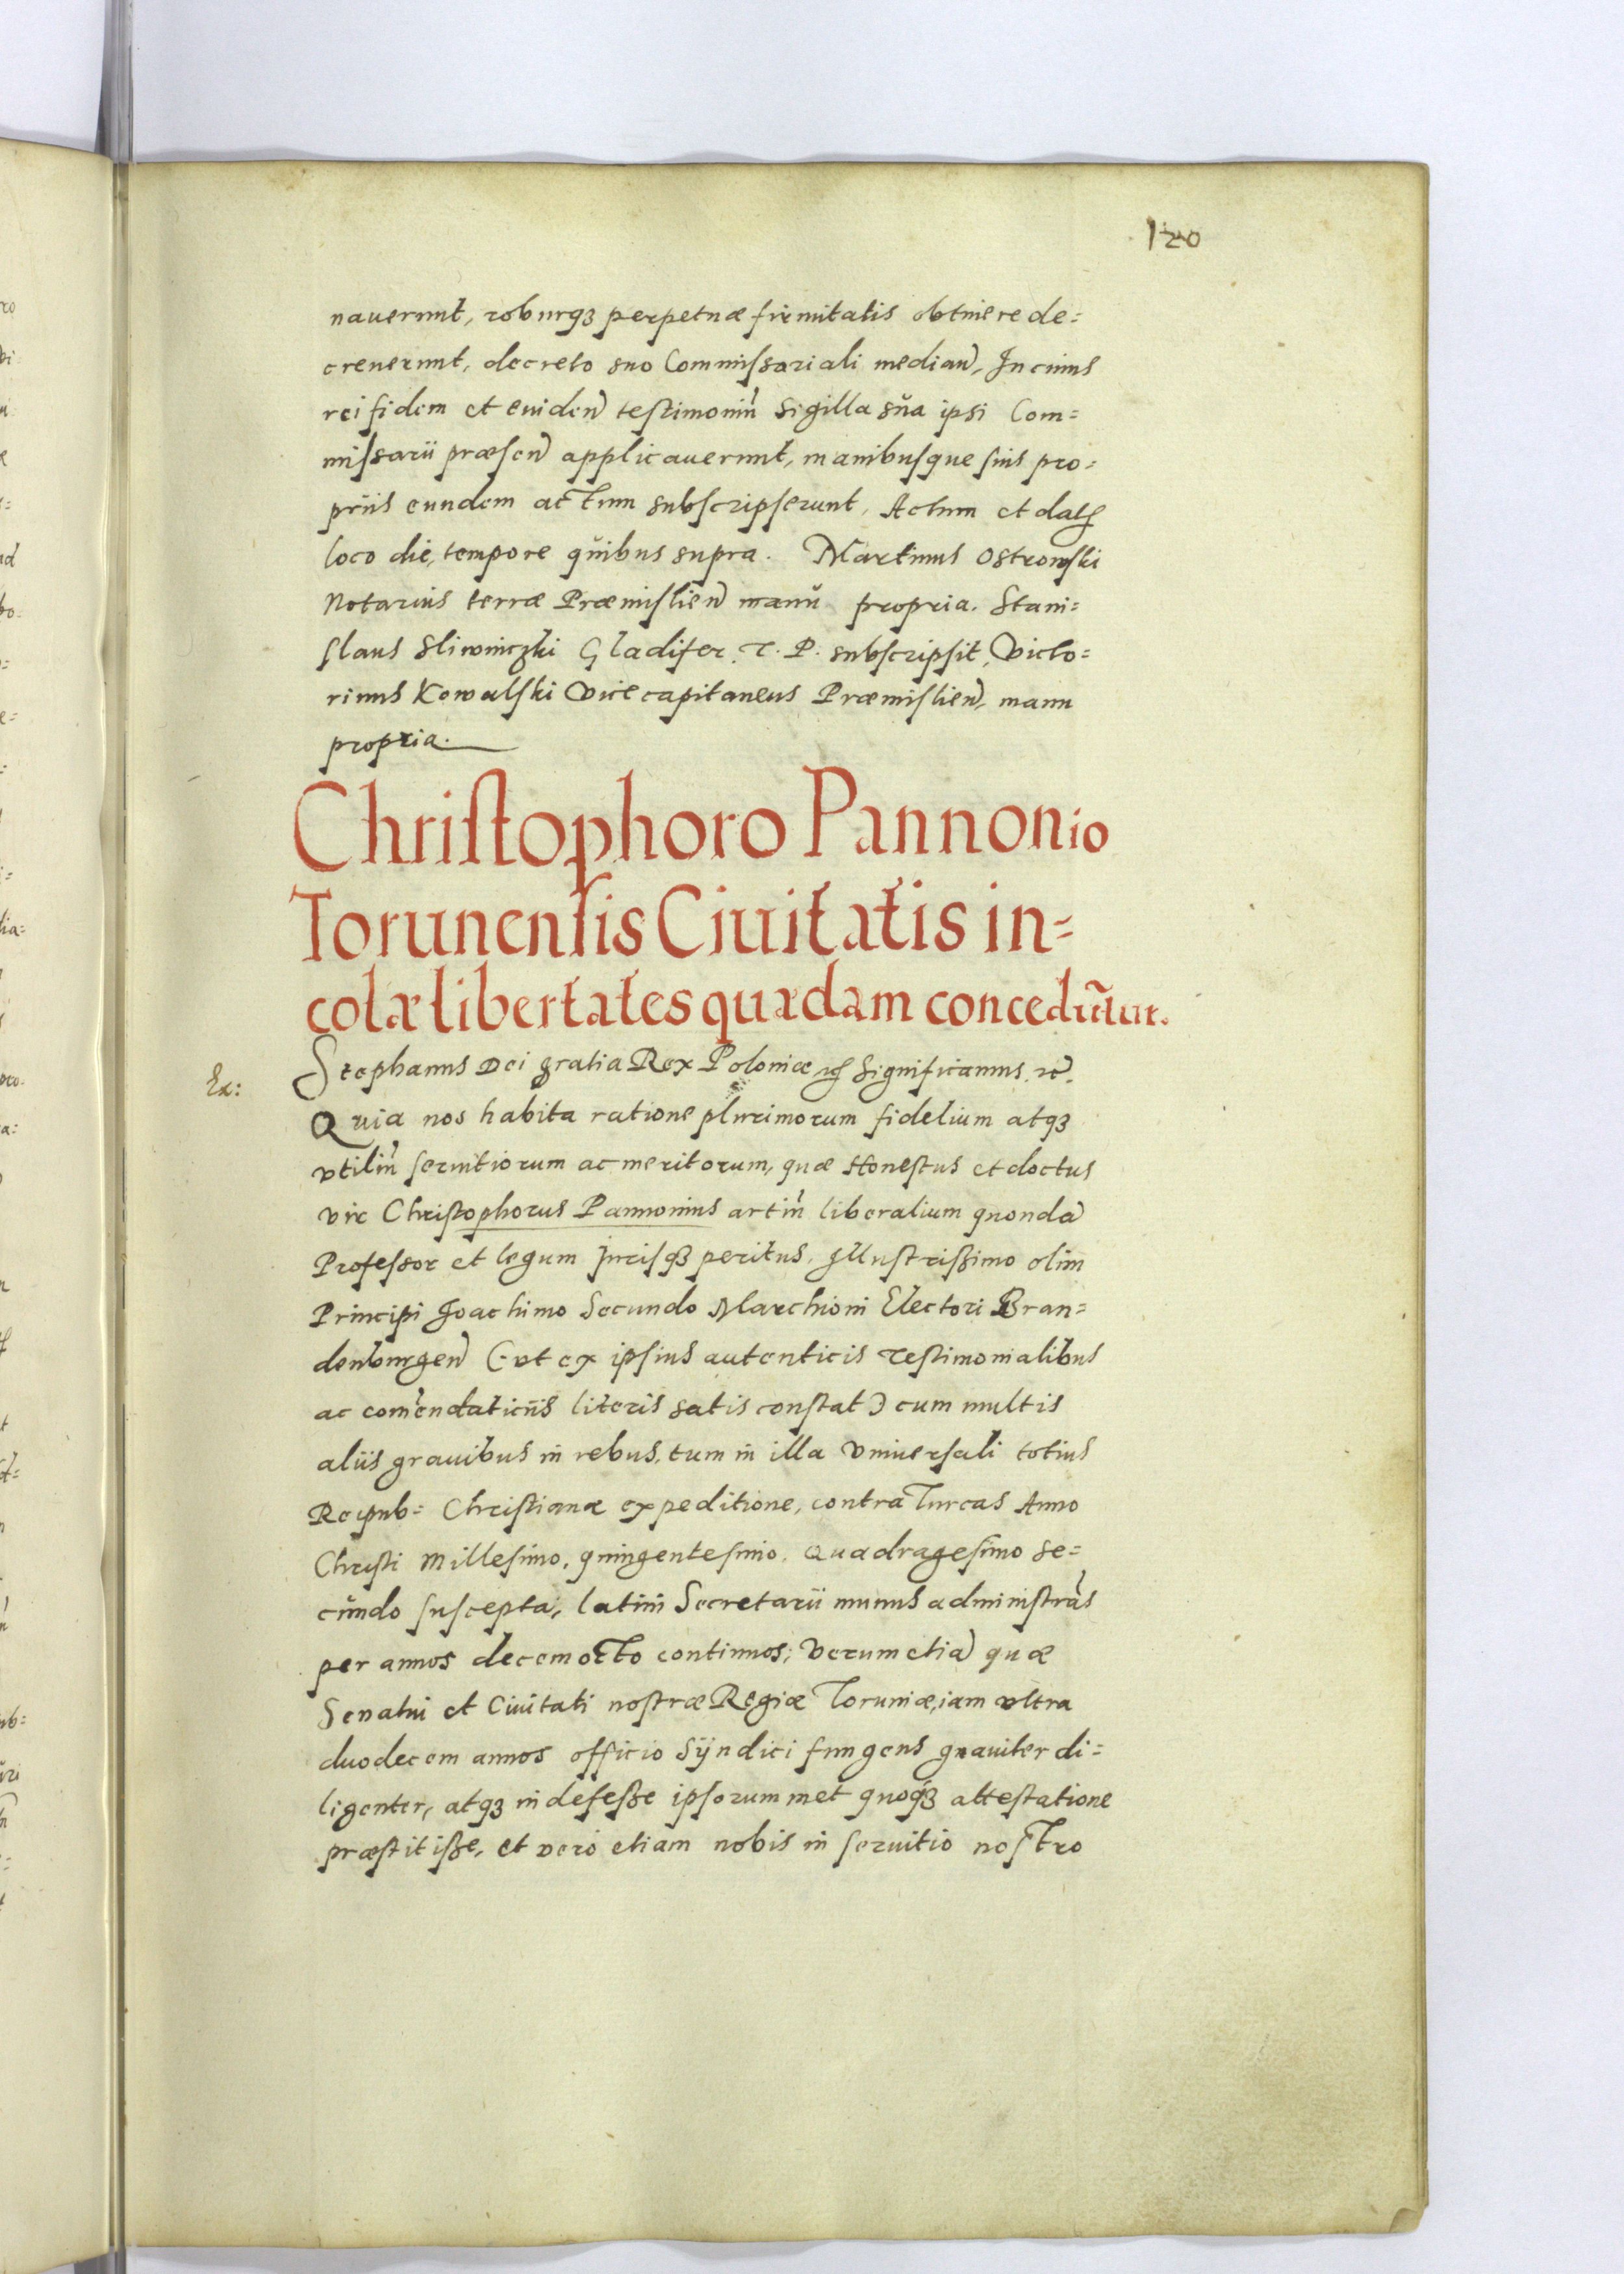 120
nauerunt, roburqȝ perpetuæ firmitatis obtinere de=
creuerunt, decreto suo Commissariali median, In cuius
rei fidem et euiden testimoniū sigilla sua ipsi Com=
missarii præsen applicauerunt, manibusque suis pro=
priis eundem actum subscripserunt, Actum et dat
loco die, tempore quibus supra. Martinus Ostrowski
Notarius terræ Præmislien manu propria. Stani=
slaus Sliwniczki Gladifer. T. P. subscripsit, Victo=
rinus Kowalski Vicecapitaneus Præmislien, manu
propria.
Christophoro Pannonio
Torunensis Ciuitatis in=
colæ libertates quædam concedūtur.
Ex: Stephanus Dei gratia Rex Poloniæ Significamus
Quia nos habita ratione plurimorum fidelium atqȝ
vtiliū seruitiorum ac meritorum, quæ Honestus et doctus
vir Christophorus Pannonius artiū liberalium quondā
Professor et legum Jurisqȝ peritus, Illustrissimo olim
Principi Joachimo Secundo Marchioni Electori Bran=
denburgen (vt ex ipsius autenticis testimonialibus
ac comendaticiis literis satis constat) cum multis
aliis grauibus in rebus, tum in illa Vniuersali totius
Reipub= Christianæ expeditione, contra Turcas Anno
Christi Millesimo, quingentesimo, Quadragesimo se=
cundo suscepta, latini Secretarii munus administrās
per annos decemocto continuos; Verum etiā quæ
Senatui et Ciuitati nostræ Regiæ Toruniæ, iam vltra
duodecem annos officio Sÿndici fungens grauiter di=
ligenter, atqȝ indefesse ipsorummet quoqȝ attestatione
præstitisse, et vero etiam nobis in seruitio nostro